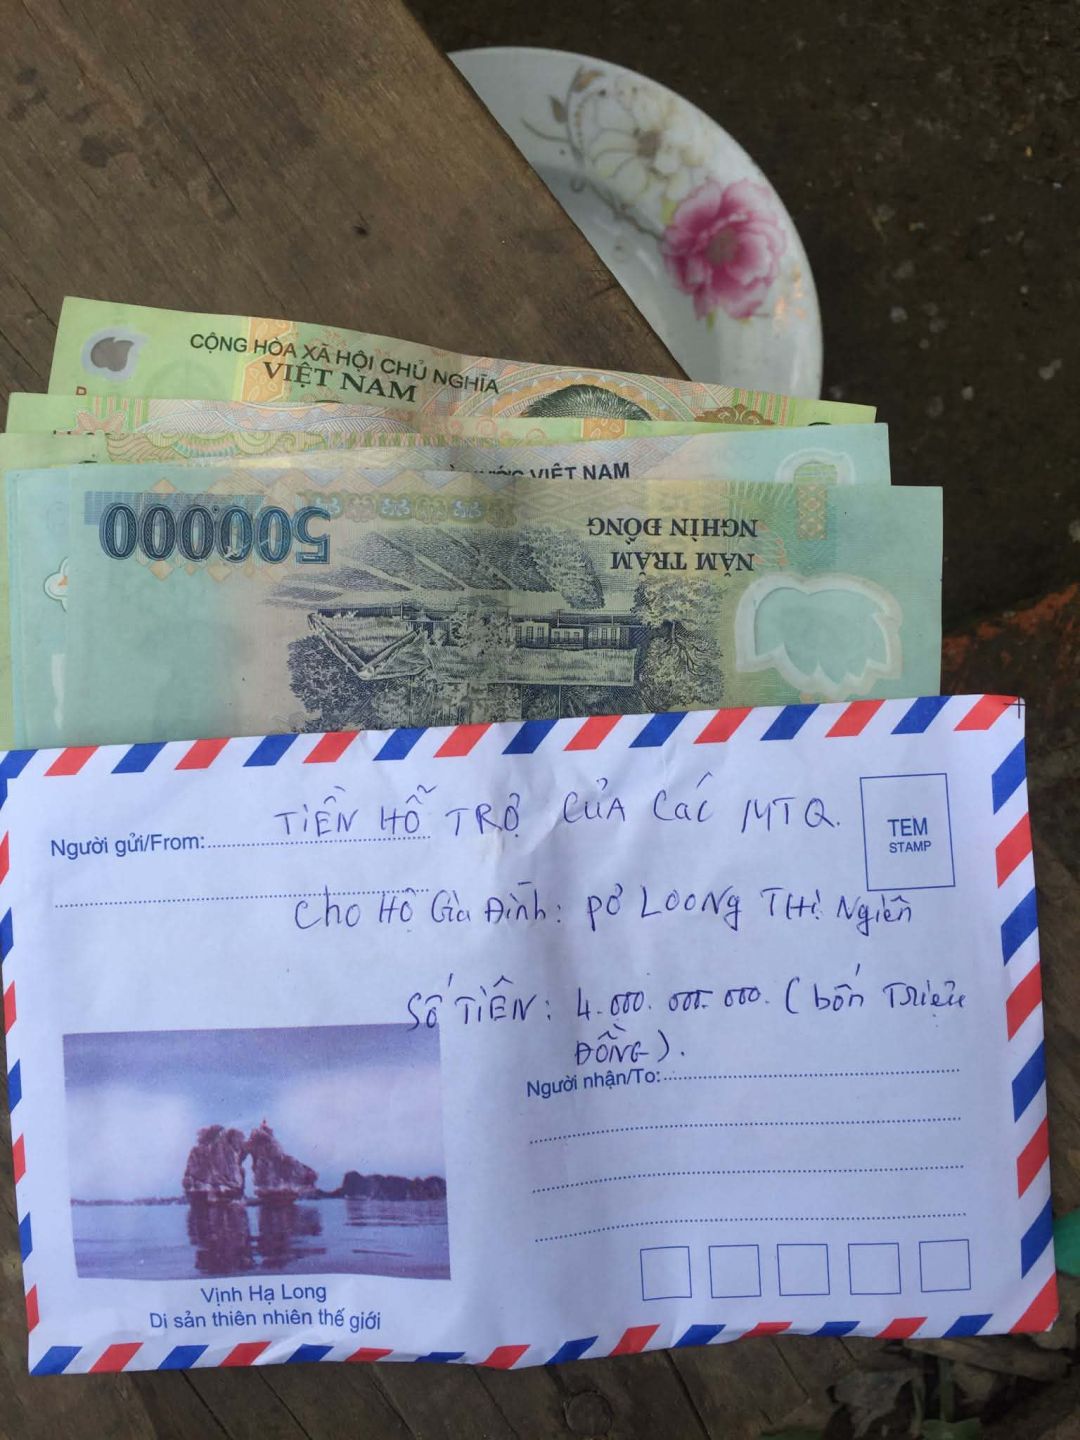 CỘNG HÒA XÃ HỘI CHỦ NGHĨA
VIỆT NAM
VIỆT NAM
500000
NĂM TRĂM
NGHÌN ĐỒNG
TIỀN HỖ TRỢ CỦA CÁC MTQ.
Người gửi/From:
TEM
STAMP
Cho Hộ Gia Đình: PỜ LOONG THỊ Nghiên
SỐ TIỀN: 4.000.000.000. (bốn Triệu
ĐỒNG).
Người nhận/To:
Vịnh Hạ Long
Di sản thiên nhiên thế giới